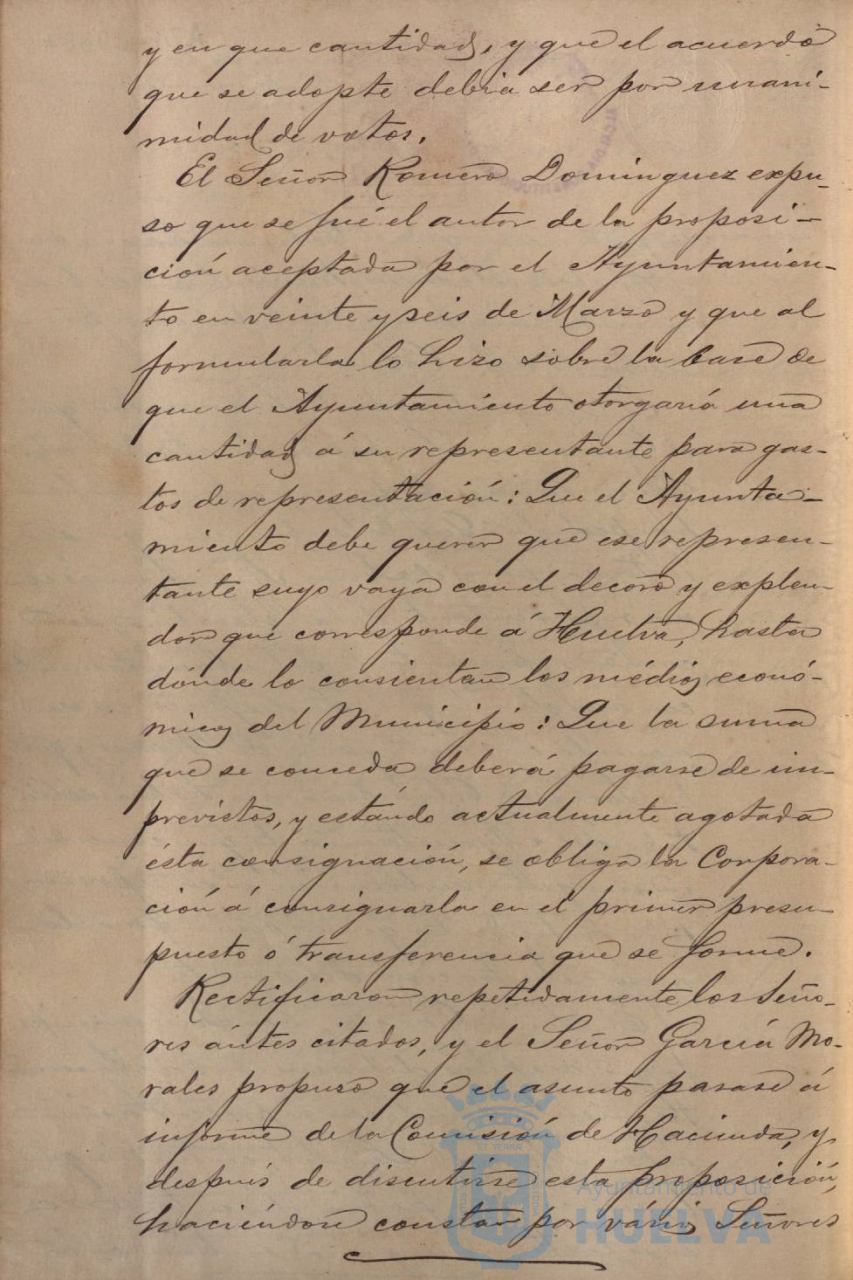 y en que cantidad, y que el acuerdo
que se adopte debia ser por unani-
midad de votos.
El Señor Romero Dominguez expu-
so que se fué el autor de la proposi-
ción aceptada por el Ayuntamien-
to en veinte y seis de Marzo y que al
formularla lo hizo sobre la base de
que el Ayuntamiento otorgaria una
cantidad á su representante para gas-
tos de representación: Que el Ayunta-
miento debe querer que ese represen-
tante suyo vaya con el decoro y explen-
dor que corresponde á Huelva, hasta
dónde lo consientan los médios econó-
micos del Municipio: Que la suma
que se conceda deberá pagarse de im-
previstos, y estándo actualmente agotada
ésta consignación, se obliga la Corpora-
ción á consignarla en el primer presu-
puesto ó transferencia que se forme.
Rectificaron repetidamente los Seño-
res ántes citados, y el Señor García Mo-
rales propuso que el asunto pasase á
informe de la Comisión de Hacienda, y
después de discutirse esta proposición,
haciéndose constar por vários Señores
Ayuntamiento de
HUELVA